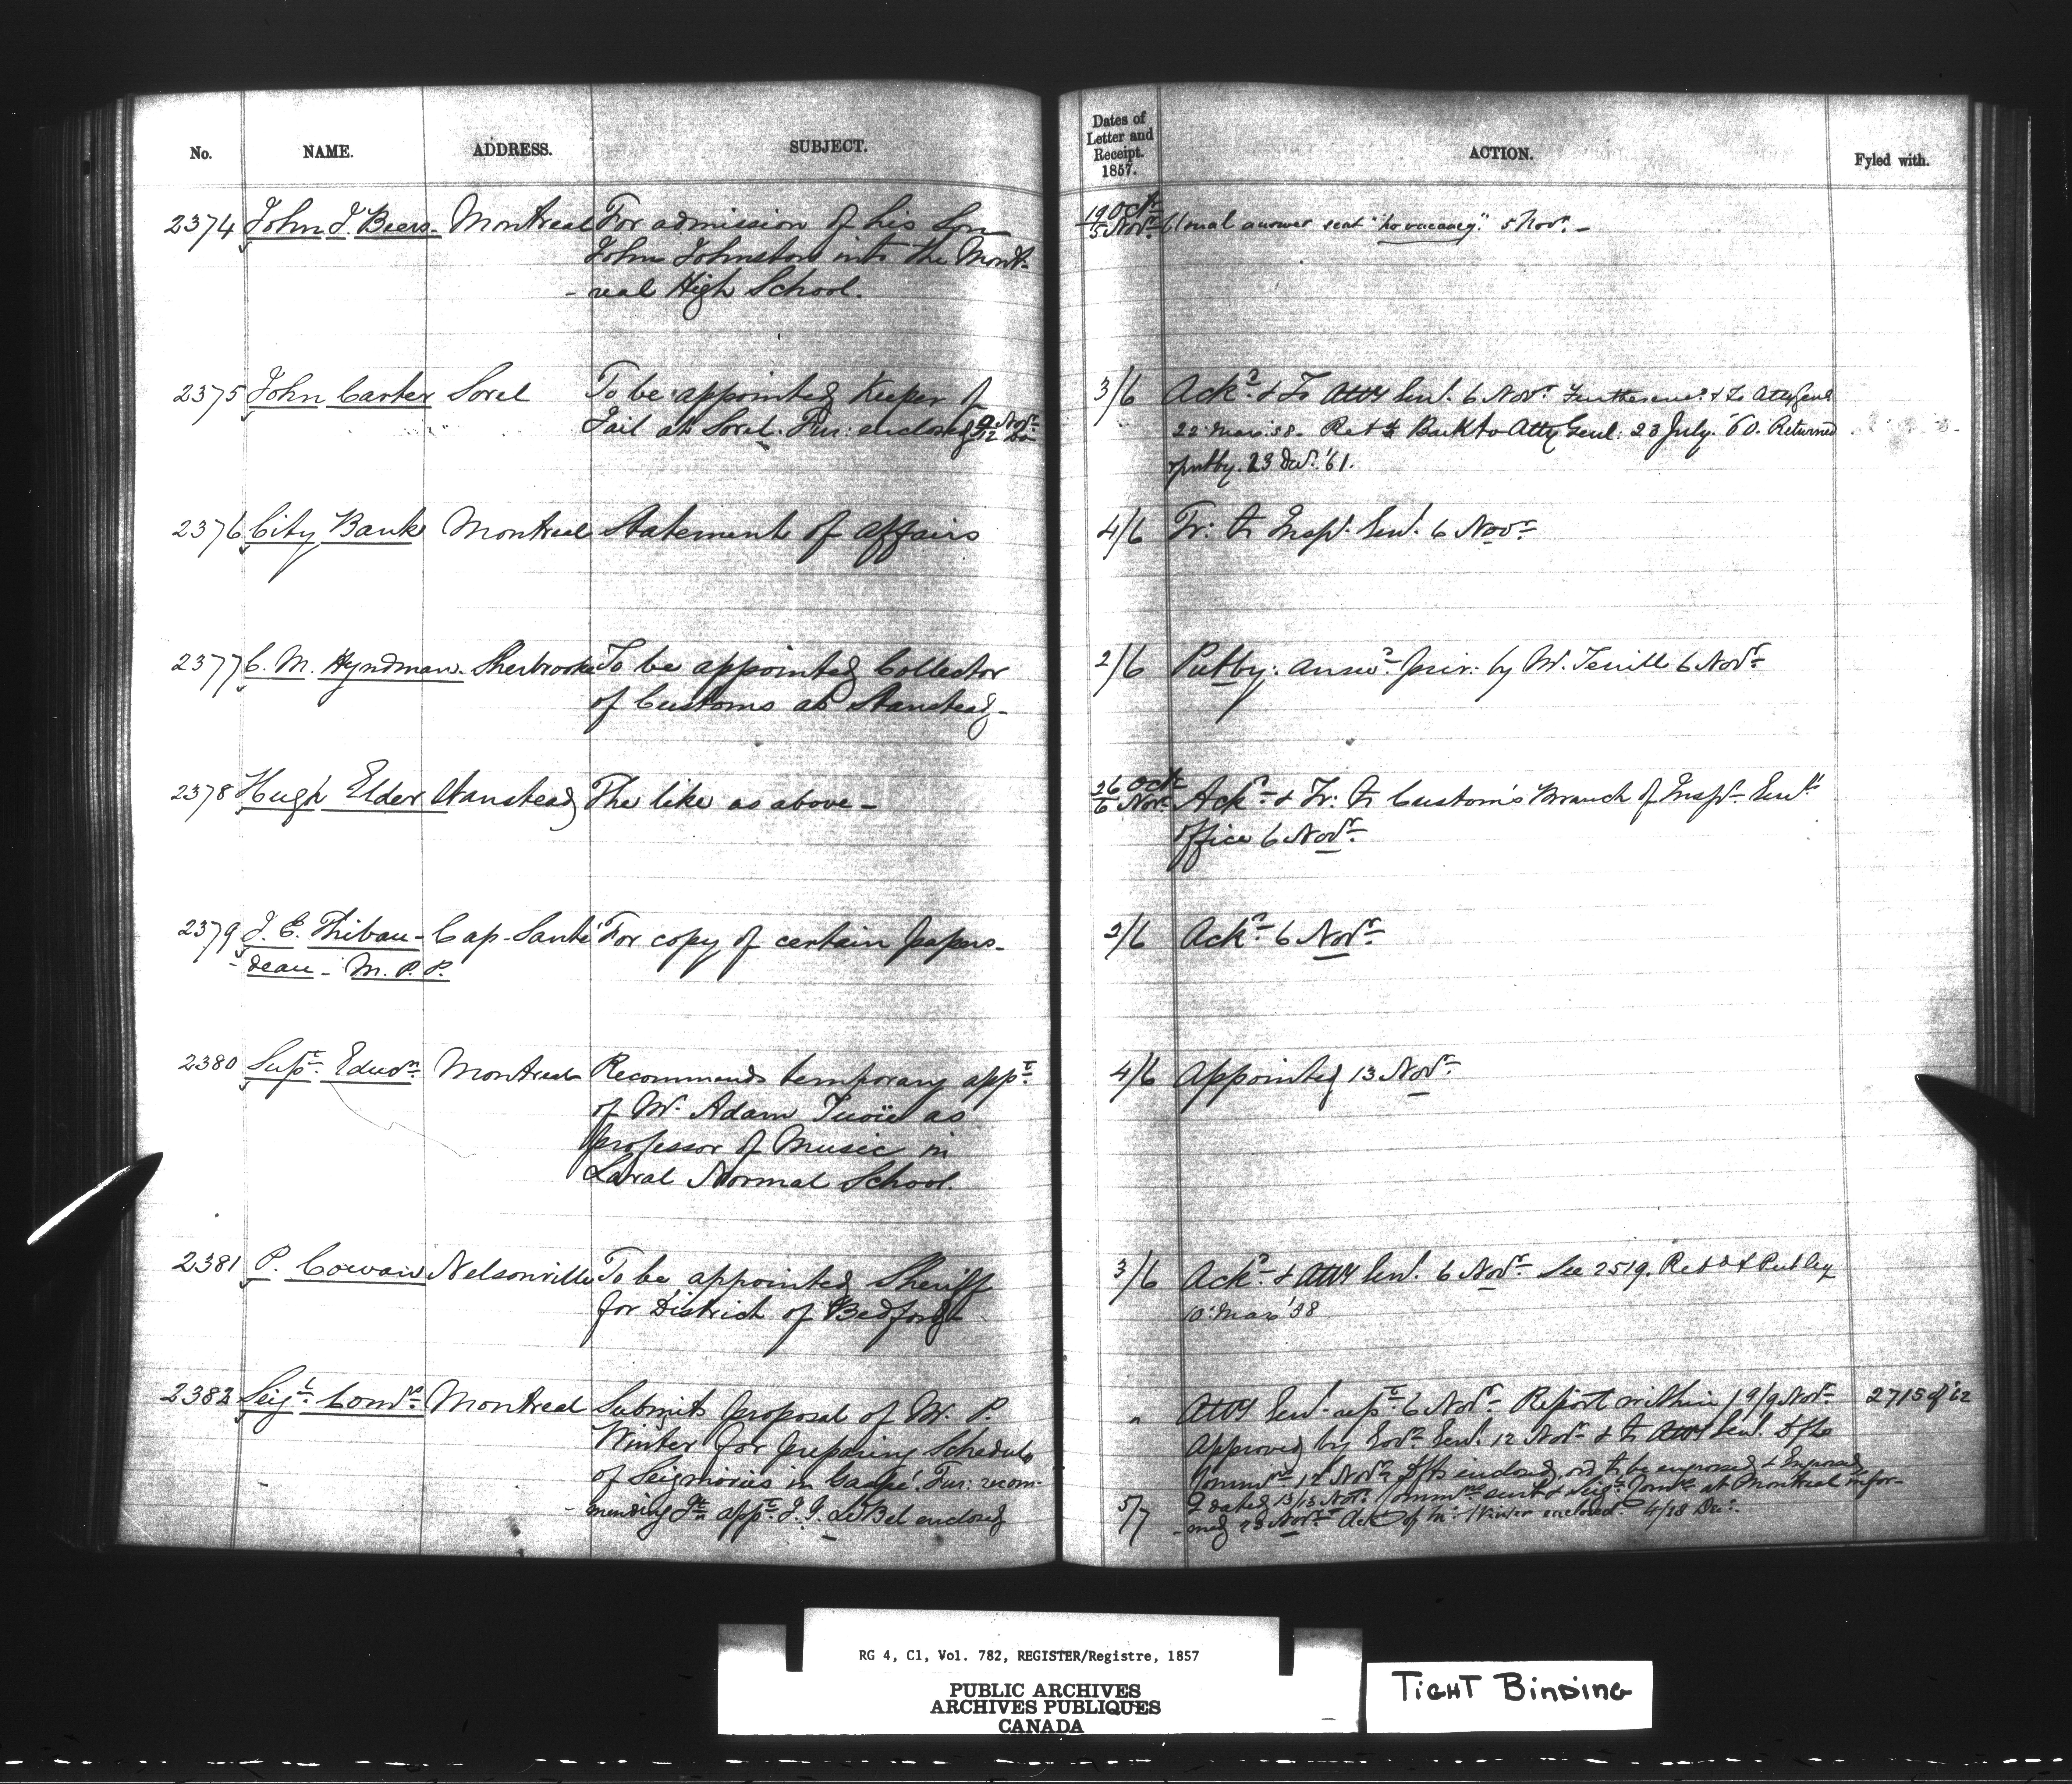 No. NAME. ADDRESS. SUBJECT.
2374 John J. Beers- Montreal For admission of his Son
John Johnston into the Mont-
-real High School.
2375 John Carter Sorel To be appointed Keeper of
Jail at Sorel. Fur: enclosed 9 Novr. 12 do
2376 City Bank Montreal Statement of affairs
2377 C. M. Hyndman. Sherbrooke To be appointed Collector
of Customs at Stanstead-
2378 Hugh Elder Stanstead The like as above-
2379 J. E. Thibau- Cap-Santé For copy of certain papers-
-deau- M.P.P.
2380 Supt. Educn. Montreal Recommends temporary appt.
of Mr. Adam as
professor of Music in
Laval Normal School.
2381 P. Cowan Nelsonville To be appointed Sheriff
for District of Bedford
2382 Seigl. Comrs. Montreal Submits proposal of Mr. P.
Winter for preparing Schedule
of Seigniories in Gaspé. Fur: recom-
-mending appt. J. J. Le Bel enclosed
Dates of
Letter and
Receipt.
1857.
ACTION. Fyled with.
19 Oct.
5 Novr. Usual answer sent "no vacancy." 5 Novr. -
3/6 Ackd. & To Atty Genl. 6 Novr. & To Atty Genl
22 Mar. 58. Back to Atty Genl: 23 July. '60. Returned
putby. 23 '61.
4/6 Tr: to Inspr. Genl. 6 Novr.
2/6 Putby: answd. priv: by Mr. Terrill 6 Novr.
26 Oct.
6 Novr. Ackd. & Tr: to Custom's Branch of Inspr. Genls
office 6 Novr.
2/6 Ackd. 6 Novr.
4/6 Appointed 13 Novr.
3/6 Ackd. & Atty Genl. 6 Novr. See 2519. Retd & Put by
10 Mar '58
" Atty Genl. rept. 6 Novr. Report within 9/9 Novr. 2715 of '62
Approved by Govr. Genl. 12 Novr. & to Atty Genl. Dft
Commn. 12 Novr. Dft enclosed, to be engrossed & Engrossed
& dated 13/13 Novr. sent & Seigl. Comrs. at Montreal infor-
5/7 -med 23 Novr. Ackt. of Mr. Winter enclosed. /18 Decr.
RG 4, C1, Vol. 782, REGISTER/Registre, 1857
PUBLIC ARCHIVES
ARCHIVES PUBLIQUES
CANADA
TIGHT BINDING